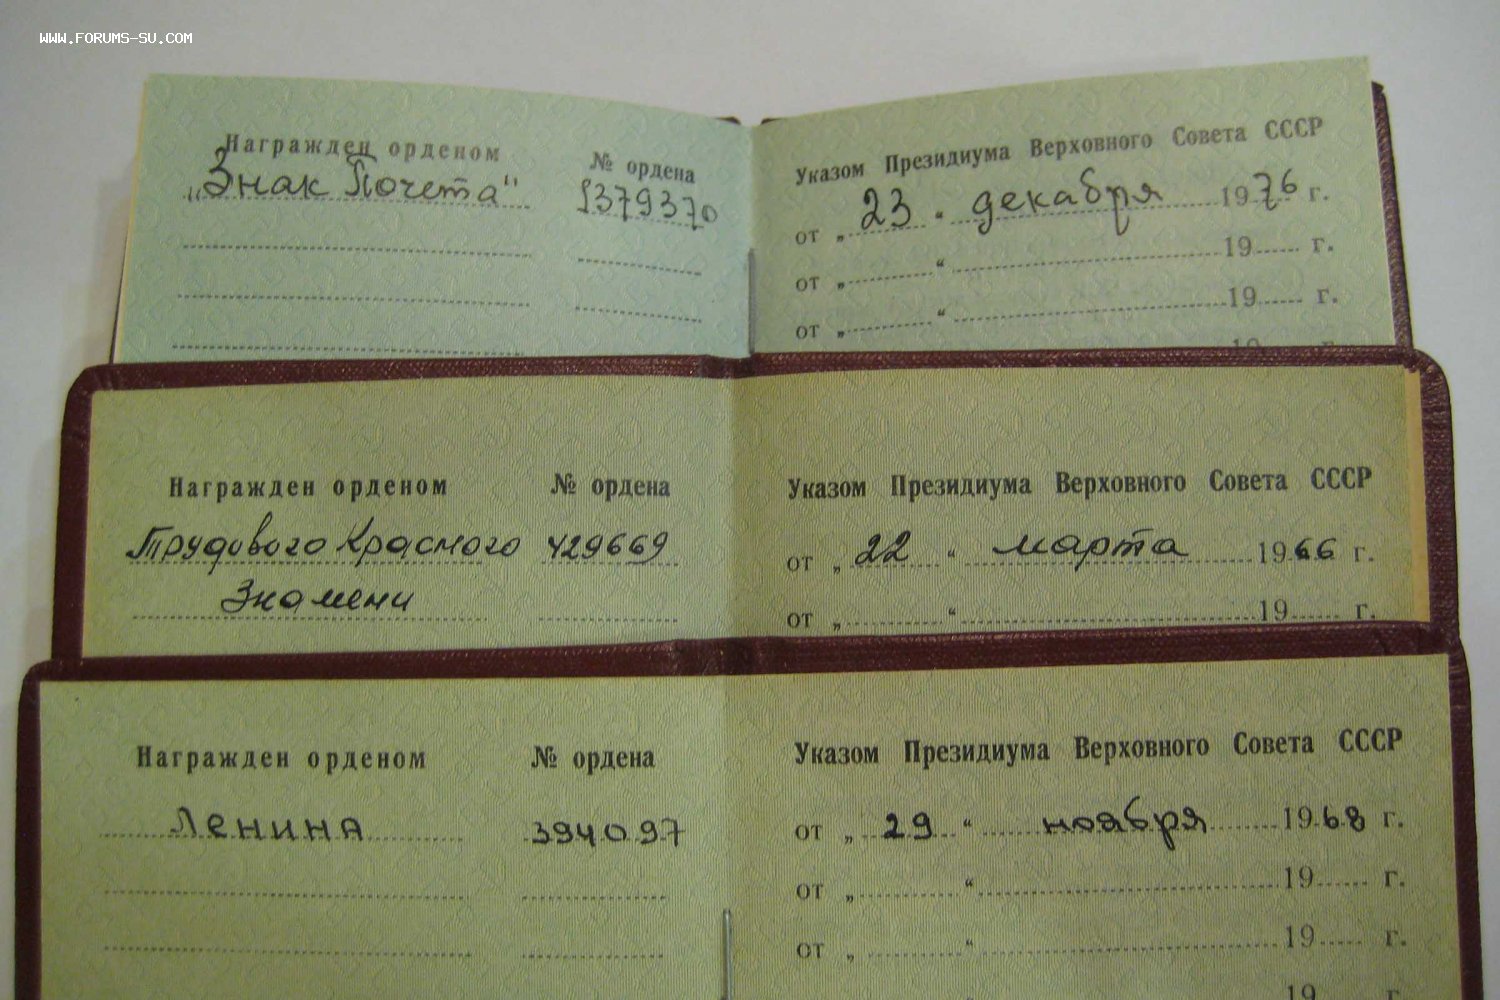 WWW.FORUMS-SU.COM
Награжден орденом № ордена Указом Президиума Верховного Совета СССР
„Знак Почета“ 1379370 от „ 23 “ декабря 1976 г.
от „ “ 19 г.
от „ “ 19 г.
19 г.
Награжден орденом № ордена Указом Президиума Верховного Совета СССР
Трудового Красного 429669 от „ 22 “ марта 1966 г.
Знамени от „ “ 19 г.
Награжден орденом № ордена Указом Президиума Верховного Совета СССР
Ленина 394097 от „ 29 “ ноября 1968 г.
от „ “ 19 г.
от „ “ 19 г.
19 г.